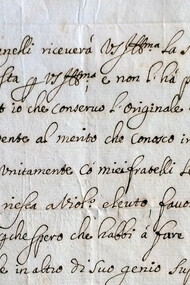 nelli riceverá VS Illma La S
sta p VS Illma, e non l'hà p
io che conseruo l'Originale
dente al merito che Conosco in
Vnitamente Có miei fratelli
riesca a Voli eleuto, fauo
che spero che habbi à fare
e in altro di Suo genio